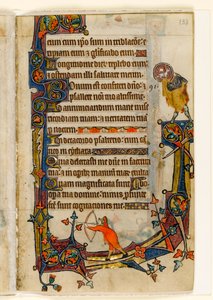 eum cum ipso sum in tribulacõe: e
ripiam eum et glificabo eum.
Longitudine dierum replebo eum: et
ostendam illi salutare meum.
Bonum est confiteri dño: et
psallere nomini tuo altissime.
Ad annunciandum mane miam
tuam: et veritatem tuam
per noctem.
In decacordo psalterio: cum can
tico in cythara.
Quia delectasti me dñe in factura
tua: et in operibus manuum tuarum exultabo
Quam magnificata sunt opera
tua dñe: nimis profunde fcẽ
sunt cogitationes tue.